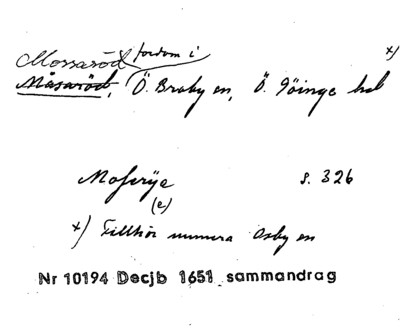 Mossaröd fordom i x)
Måsaröd, Ö. Broby sn, Ö. Göinge hd
Mosserÿe s. 326
(e)
x) Tillhör numera Osby sn
Nr 10194 Decjb 1651 sammandrag